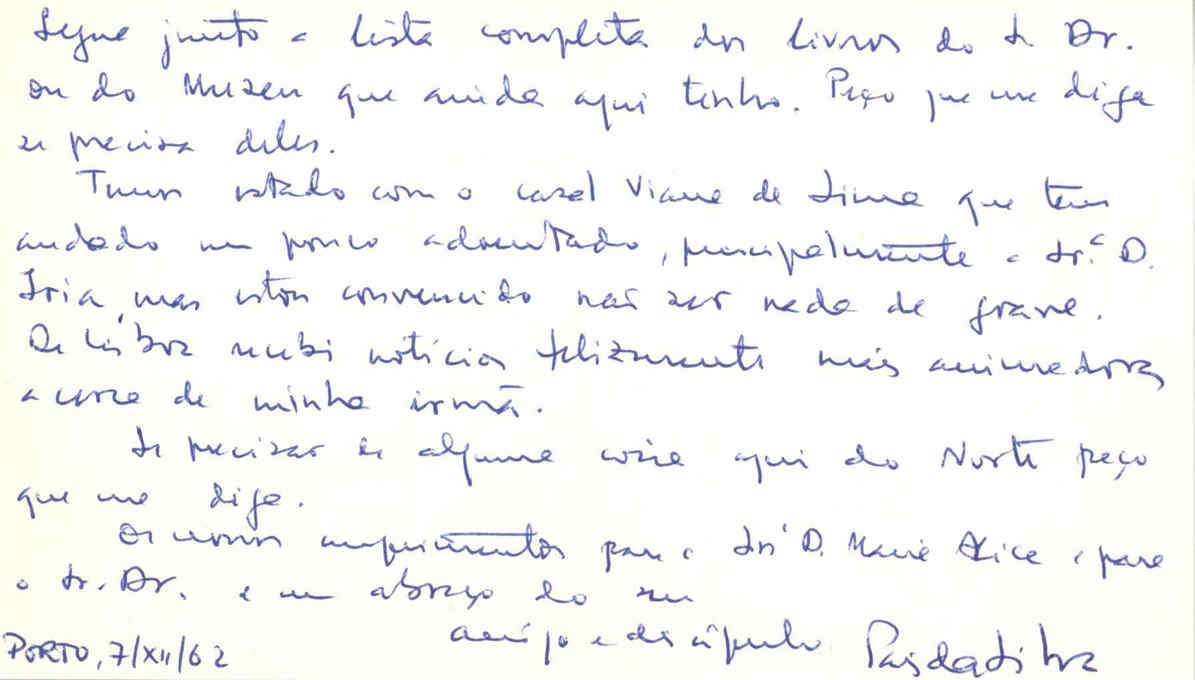 Segue junto a lista completa dos livros do Sr Dr.
ou do Museu que ainda aqui tenho. Peço que me diga
se precisa deles.
Temos estado com o casal Viana de Lima que tem
andado um pouco adoentado, principalmente a Sr.ª D.
Iria, mas estou convencido não ser nada de grave.
De Lisboa recebi notícias felizmente mais animadoras
acerca de minha irmã.
Se precisar de alguma coisa aqui do Norte peço
que me diga.
Os nossos cumprimentos para a Srª D. Maria Alice e para
o Sr. Dr. e um abraço do seu
amigo e discípulo Pais da Silva
PORTO, 7/XII/62